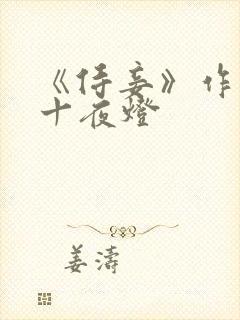 《侍妾》作
十夜燈
姜濤